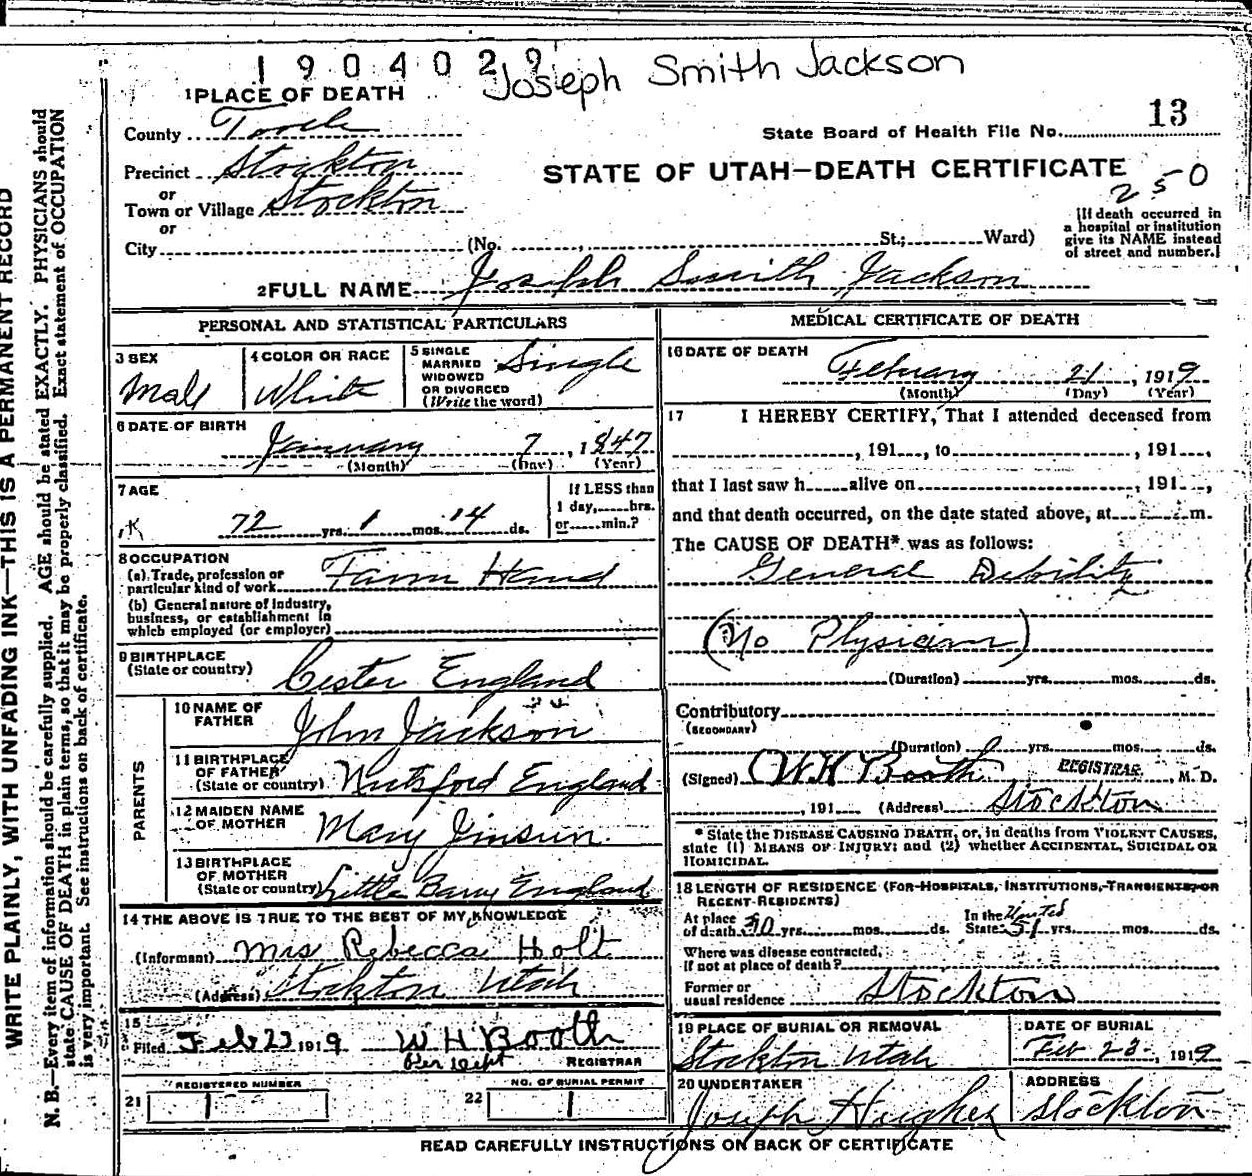 1904029
Joseph Smith Jackson
1 PLACE OF DEATH
County Tooele
State Board of Health File No. 13
Precinct Stockton
STATE OF UTAH—DEATH CERTIFICATE
250
or
Town or Village Stockton
or
City (No. St.; Ward)
[If death occurred in
a hospital or institution
give its NAME instead
of street and number.]
2 FULL NAME Joseph Smith Jackson
PERSONAL AND STATISTICAL PARTICULARS
3 SEX
Male
4 COLOR OR RACE
White
5 SINGLE
MARRIED
WIDOWED
OR DIVORCED
(Write the word)
Single
6 DATE OF BIRTH
January 7, 1847
(Month) (Day) (Year)
7 AGE
72 yrs. 1 mos. 14 ds.
If LESS than
1 day, hrs.
or min.?
8 OCCUPATION
(a) Trade, profession or
particular kind of work Farm Hand
(b) General nature of industry,
business, or establishment in
which employed (or employer)
9 BIRTHPLACE
(State or country) Cester England
PARENTS
10 NAME OF
FATHER John Jackson
11 BIRTHPLACE
OF FATHER
(State or country) Nutsford England
12 MAIDEN NAME
OF MOTHER Mary
13 BIRTHPLACE
OF MOTHER
(State or country) Little Barry England
14 THE ABOVE IS TRUE TO THE BEST OF MY KNOWLEDGE
(Informant) Mrs Rebecca Holt
(Address) Stockton Utah
15
Filed Feb 23 1919 W H Booth
Per Dept REGISTRAR
REGISTERED NUMBER
21
NO. OF BURIAL PERMIT
22
MEDICAL CERTIFICATE OF DEATH
16 DATE OF DEATH
February 21, 1919
(Month) (Day) (Year)
17 I HEREBY CERTIFY, That I attended deceased from
, 191 , to , 191 ,
that I last saw h alive on , 191 ,
and that death occurred, on the date stated above, at m.
The CAUSE OF DEATH* was as follows:
General Debility
(No Physician)
(Duration) yrs. mos. ds.
Contributory
(SECONDARY)
(Duration) yrs. mos. ds.
(Signed) W H Booth REGISTRAR, M. D.
, 191 (Address) Stockton
* State the DISEASE CAUSING DEATH, or, in deaths from VIOLENT CAUSES,
state (1) MEANS OF INJURY; and (2) whether ACCIDENTAL, SUICIDAL OR
HOMICIDAL.
18 LENGTH OF RESIDENCE (FOR HOSPITALS, INSTITUTIONS, TRANSIENTS, OR
RECENT RESIDENTS)
At place
of death 30 yrs. mos. ds.
In the United
State 51 yrs. mos. ds.
Where was disease contracted,
if not at place of death?
Former or
usual residence Stockton
19 PLACE OF BURIAL OR REMOVAL
Stockton Utah
DATE OF BURIAL
Feb 23, 1919
20 UNDERTAKER
Joseph Hughes
ADDRESS
Stockton
READ CAREFULLY INSTRUCTIONS ON BACK OF CERTIFICATE
WRITE PLAINLY, WITH UNFADING INK—THIS IS A PERMANENT RECORD
N. B.—Every item of information should be carefully supplied. AGE should be stated EXACTLY. PHYSICIANS should
state CAUSE OF DEATH in plain terms, so that it may be properly classified. Exact statement of OCCUPATION
is very important. See instructions on back of certificate.